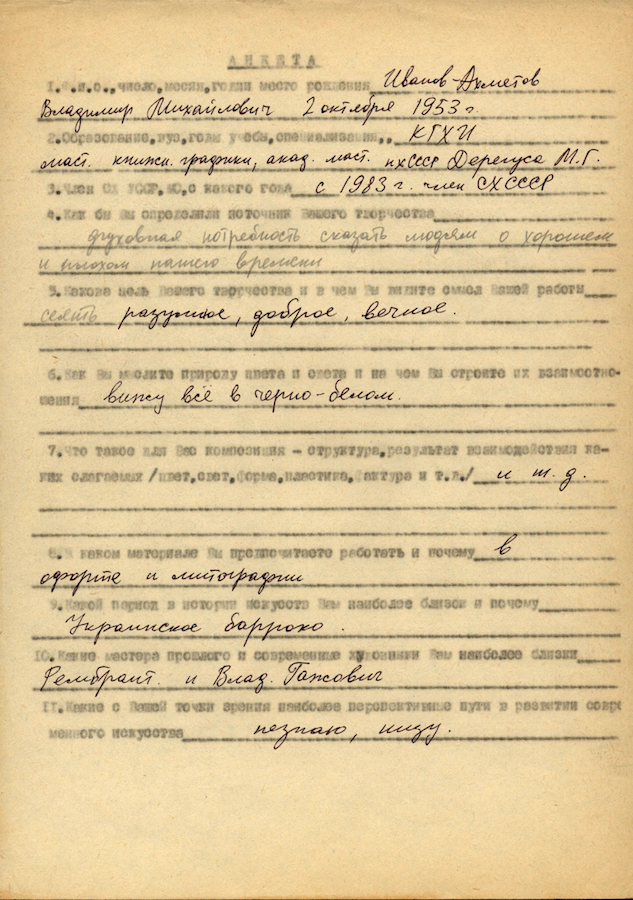 АНКЕТА
1.Ф.и.о.,число,месяц,год и место рождения Иванов-Ахметов
Владимир Михайлович 2 октября 1953 г.
2.Образование,вуз,годы учебы,специализация,, КГХИ
маст. книжн. графики, акад. маст. нхСССР Дерегуса М.Г.
3.Член СХ УССР,МО,с какого года с 1983 г. член СХСССР
4.Как бы Вы определили источник Вашего творчества
духовная потребность сказать людям о хорошем
и плохом нашего времени
5.Какова цель Вашего творчества и в чем Вы видите смысл Вашей работы
сеять разумное, доброе, вечное.
6.Как Вы мыслите природу цвета и света и на чем Вы строите их взаимоотно-
шения вижу всё в черно-белом.
7.Что такое для Вас композиция - структура,результат взаимодействия ка-
ких слагаемых /цвет,свет,форма,пластика,фактура и т.д./ и т.д.
8.В каком материале Вы предпочитаете работать и почему в
офорте и литографии
9.Какой период в истории искусств Вам наиболее близок и почему
Украинское баррокко.
10.Какие мастера прошлого и современные художники Вам наиболее близки
Рембрант. и Влад. Гажович
11.Какие с Вашей точки зрения наиболее перспективные пути в развитии совре
менного искусства незнаю, ищу.